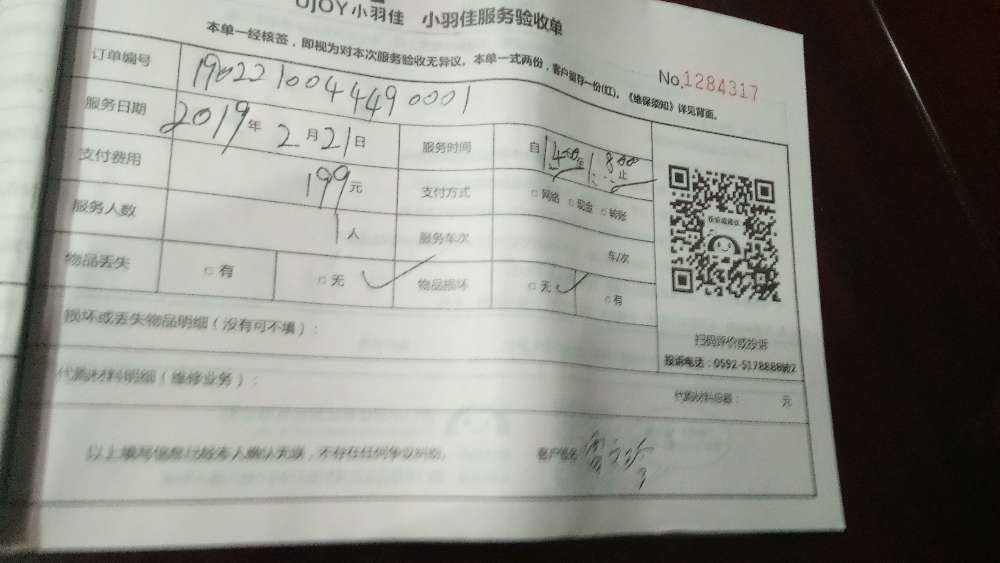 UJOY小羽佳 小羽佳服务验收单
本单一经核签，即视为对本次服务验收无异议。本单一式两份，客户留存一份(红)。《维保须知》详见背面。
No.1284317
订单编号 1902210044490001
服务日期 2019年2月21日 服务时间 自14:00至18:00止
支付费用 199元 支付方式 □网络 □现金 □转账
服务人数 1人 服务车次 车/次
物品丢失 □有 □无 ✓ 物品损坏 □无 ✓ □有
扫码评价或投诉
投诉电话：0592-5178888转2
损坏或丢失物品明细（没有可不填）：
代购材料明细（维修业务）： 代购材料总额： 元
以上填写信息已经本人确认无误，不存在任何争议纠纷。 客户签名